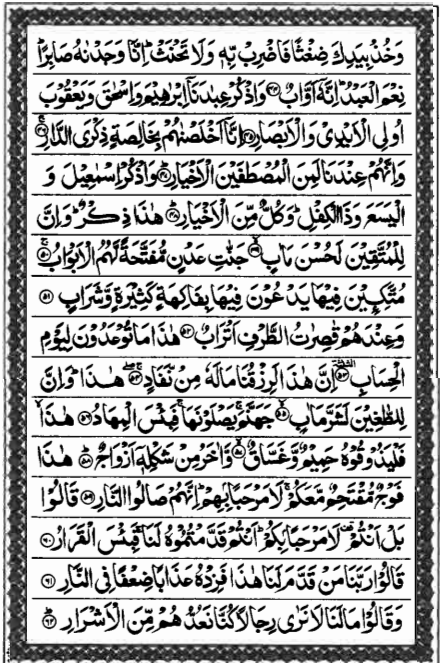 وَخُذۡ بِيَدِكَ ضِغۡثًا فَاضۡرِبۡ بِّهٖ وَلَا تَحۡنَثۡ ؕ اِنَّا وَجَدۡنٰهُ صَابِرًا ؕ
نِعۡمَ الۡعَبۡدُ ؕ اِنَّهٗۤ اَوَّابٌ ﴿۴۴﴾ وَاذۡكُرۡ عِبٰدَنَاۤ اِبۡرٰهِيۡمَ وَاِسۡحٰقَ وَيَعۡقُوۡبَ
اُولِى الۡاَيۡدِىۡ وَالۡاَبۡصَارِ ﴿۴۵﴾ اِنَّاۤ اَخۡلَصۡنٰهُمۡ بِخَالِصَةٍ ذِكۡرَى الدَّارِ ﴿۴۶﴾
وَاِنَّهُمۡ عِنۡدَنَا لَمِنَ الۡمُصۡطَفَيۡنَ الۡاَخۡيَارِ ﴿۴۷﴾ وَاذۡكُرۡ اِسۡمٰعِيۡلَ وَ
الۡيَسَعَ وَذَا الۡكِفۡلِ ؕ وَكُلٌّ مِّنَ الۡاَخۡيَارِ ﴿۴۸﴾ هٰذَا ذِكۡرٌ ؕ وَاِنَّ
لِلۡمُتَّقِيۡنَ لَحُسۡنَ مَاٰبٍ ﴿۴۹﴾ جَنّٰتِ عَدۡنٍ مُّفَتَّحَةً لَّهُمُ الۡاَبۡوَابُ ﴿۵۰﴾
مُتَّكِـِٕيۡنَ فِيۡهَا يَدۡعُوۡنَ فِيۡهَا بِفَاكِهَةٍ كَثِيۡرَةٍ وَّشَرَابٍ ﴿۵۱﴾
وَعِنۡدَهُمۡ قٰصِرٰتُ الطَّرۡفِ اَتۡرَابٌ ﴿۵۲﴾ هٰذَا مَا تُوۡعَدُوۡنَ لِيَوۡمِ
الۡحِسَابِ ﴿۵۳﴾ اِنَّ هٰذَا لَرِزۡقُنَا مَا لَهٗ مِنۡ نَّفَادٍ ﴿۵۴﴾ هٰذَا ؕ وَاِنَّ
لِلطّٰغِيۡنَ لَشَرَّ مَاٰبٍ ﴿۵۵﴾ جَهَنَّمَ ۚ يَصۡلَوۡنَهَا ۚ فَبِئۡسَ الۡمِهَادُ ﴿۵۶﴾ هٰذَا ۙ
فَلۡيَذُوۡقُوۡهُ حَمِيۡمٌ وَّغَسَّاقٌ ﴿۵۷﴾ وَّاٰخَرُ مِنۡ شَكۡلِهٖۤ اَزۡوَاجٌ ﴿۵۸﴾ هٰذَا
فَوۡجٌ مُّقۡتَحِمٌ مَّعَكُمۡ ۚ لَا مَرۡحَبًۢا بِهِمۡ ؕ اِنَّهُمۡ صَالُوا النَّارِ ﴿۵۹﴾ قَالُوۡا
بَلۡ اَنۡتُمۡ لَا مَرۡحَبًۢا بِكُمۡ ؕ اَنۡتُمۡ قَدَّمۡتُمُوۡهُ لَنَا ۚ فَبِئۡسَ الۡقَرَارُ ﴿۶۰﴾
قَالُوۡا رَبَّنَا مَنۡ قَدَّمَ لَنَا هٰذَا فَزِدۡهُ عَذَابًا ضِعۡفًا فِى النَّارِ ﴿۶۱﴾
وَقَالُوۡا مَا لَنَا لَا نَرٰى رِجَالًا كُنَّا نَعُدُّهُمۡ مِّنَ الۡاَشۡرَارِ ﴿۶۲﴾